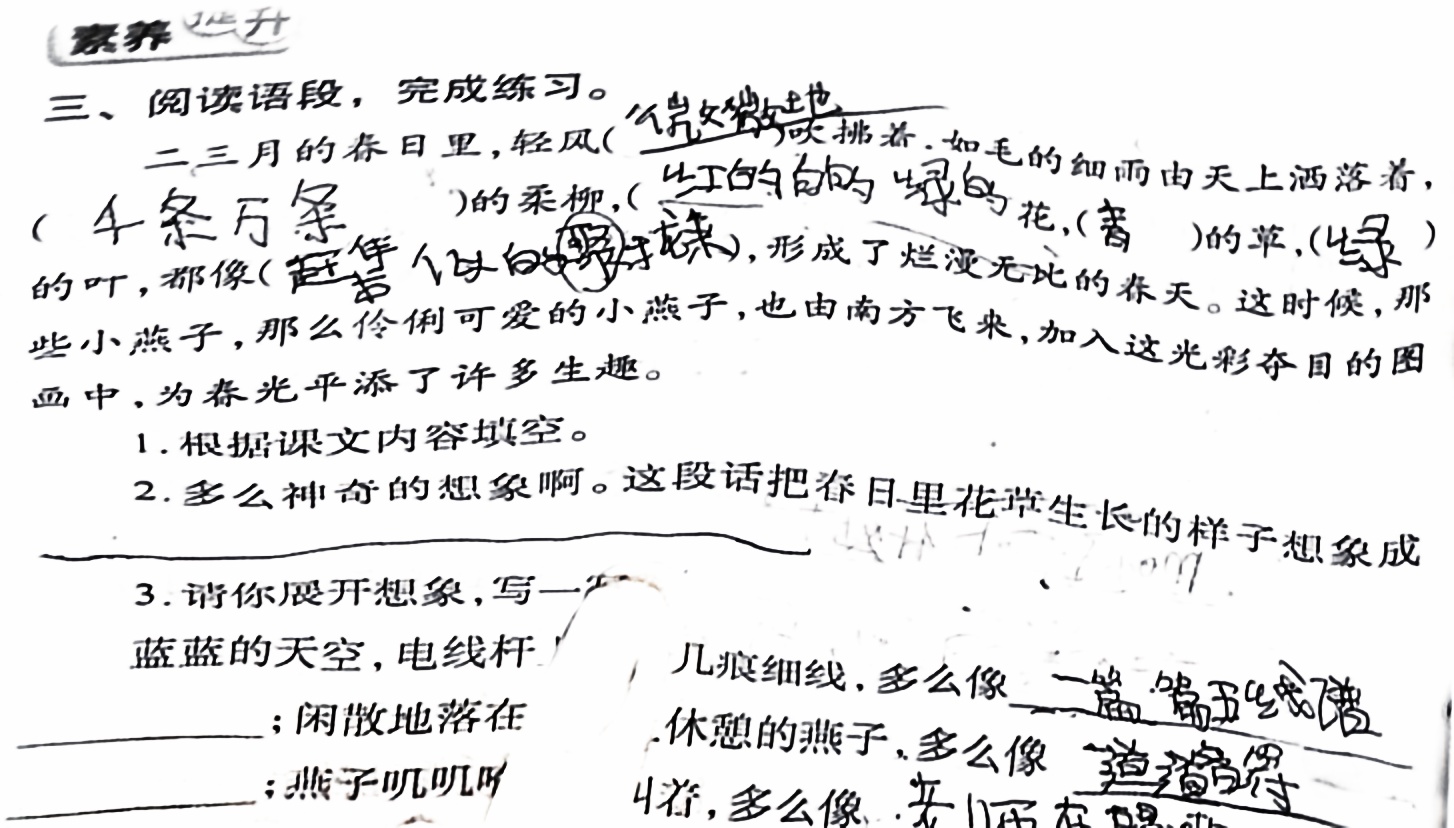 素养提升
三、阅读语段，完成练习。
二三月的春日里,轻风(微微地)吹拂着.如毛的细雨由天上洒落着,
(千条万条)的柔柳,(红的白的绿的花,(青)的草,(绿)
的叶,都像(赶集似的聚拢来),形成了烂漫无比的春天。这时候,那
些小燕子,那么伶俐可爱的小燕子,也由南方飞来,加入这光彩夺目的图
画中,为春光平添了许多生趣。
1.根据课文内容填空。
2.多么神奇的想象啊。这段话把春日里花草生长的样子想象成
3.请你展开想象,写一
蓝蓝的天空,电线杆 几痕细线,多么像 一篇篇五线谱
;闲散地落在 休憩的燕子,多么像
;燕子叽叽 着,多么像